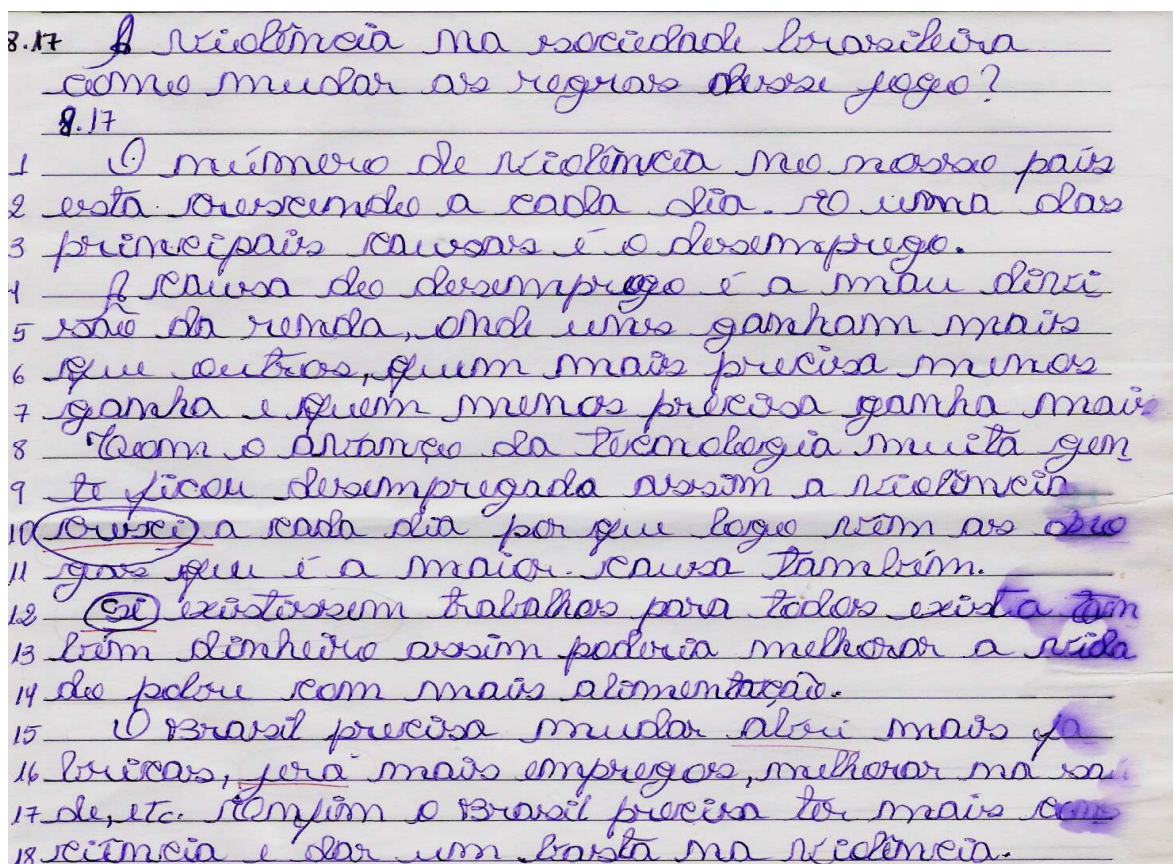 8.17 A violência na sociedade brasileira
como mudar as regras desse jogo?
8.17
1 O número de violência no nosso país
2 esta crescendo a cada dia. E uma das
3 principais causas é o desemprego.
4 A causa do desemprego é a mau divi
5 são da renda, onde uns ganham mais
6 que outros, quem mais precisa menos
7 ganha e quem menos precisa ganha mais
8 Com o avanço da tecnologia muita gen
9 te ficou desempregada assim a violência
10 cresci a cada dia por que logo vem as dro
11 gas que é a maior causa também.
12 Si existissem trabalhos para todos exista tam
13 bém dinheiro assim poderia melhorar a vida
14 do pobre com mais alimentação.
15 O Brasil precisa mudar abri mais fa
16 bricas, jera mais empregos, melhorar na sau
17 de, etc. Enfim o Brasil precisa ter mais cons
18 ciência e dar um basta na violência.